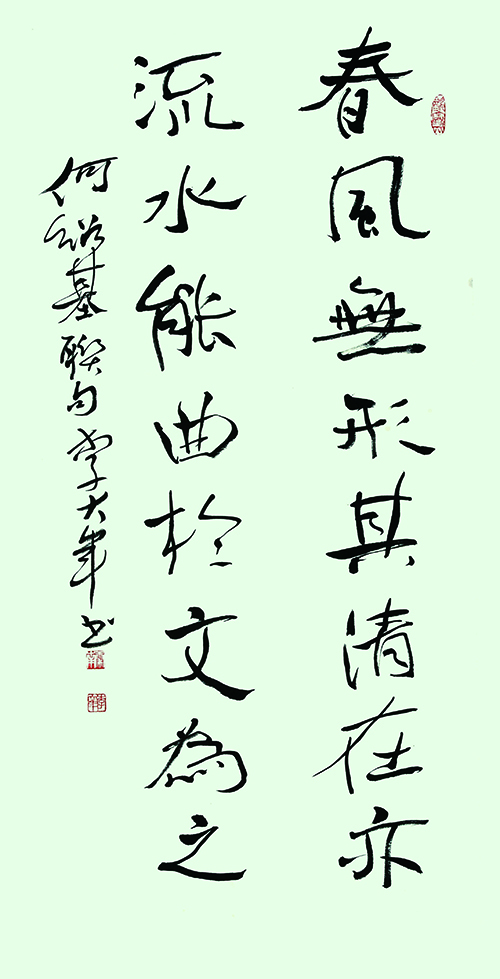 春風無形其清在亦
流水能曲於文為之
何紹基聯句李大年书